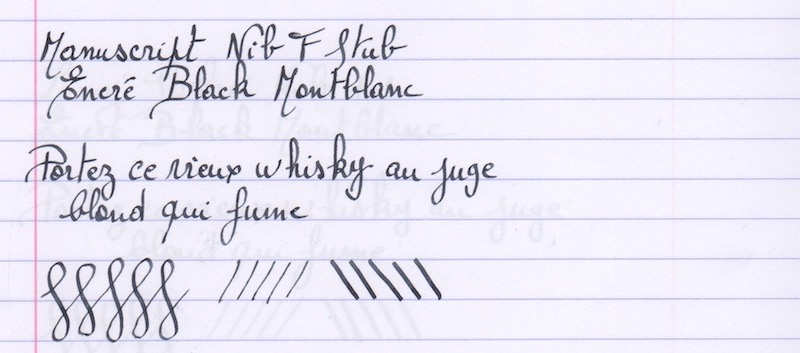 Manuscript Nib F Stub
Encré Black Montblanc
Portez ce vieux whisky au juge
blond qui fume